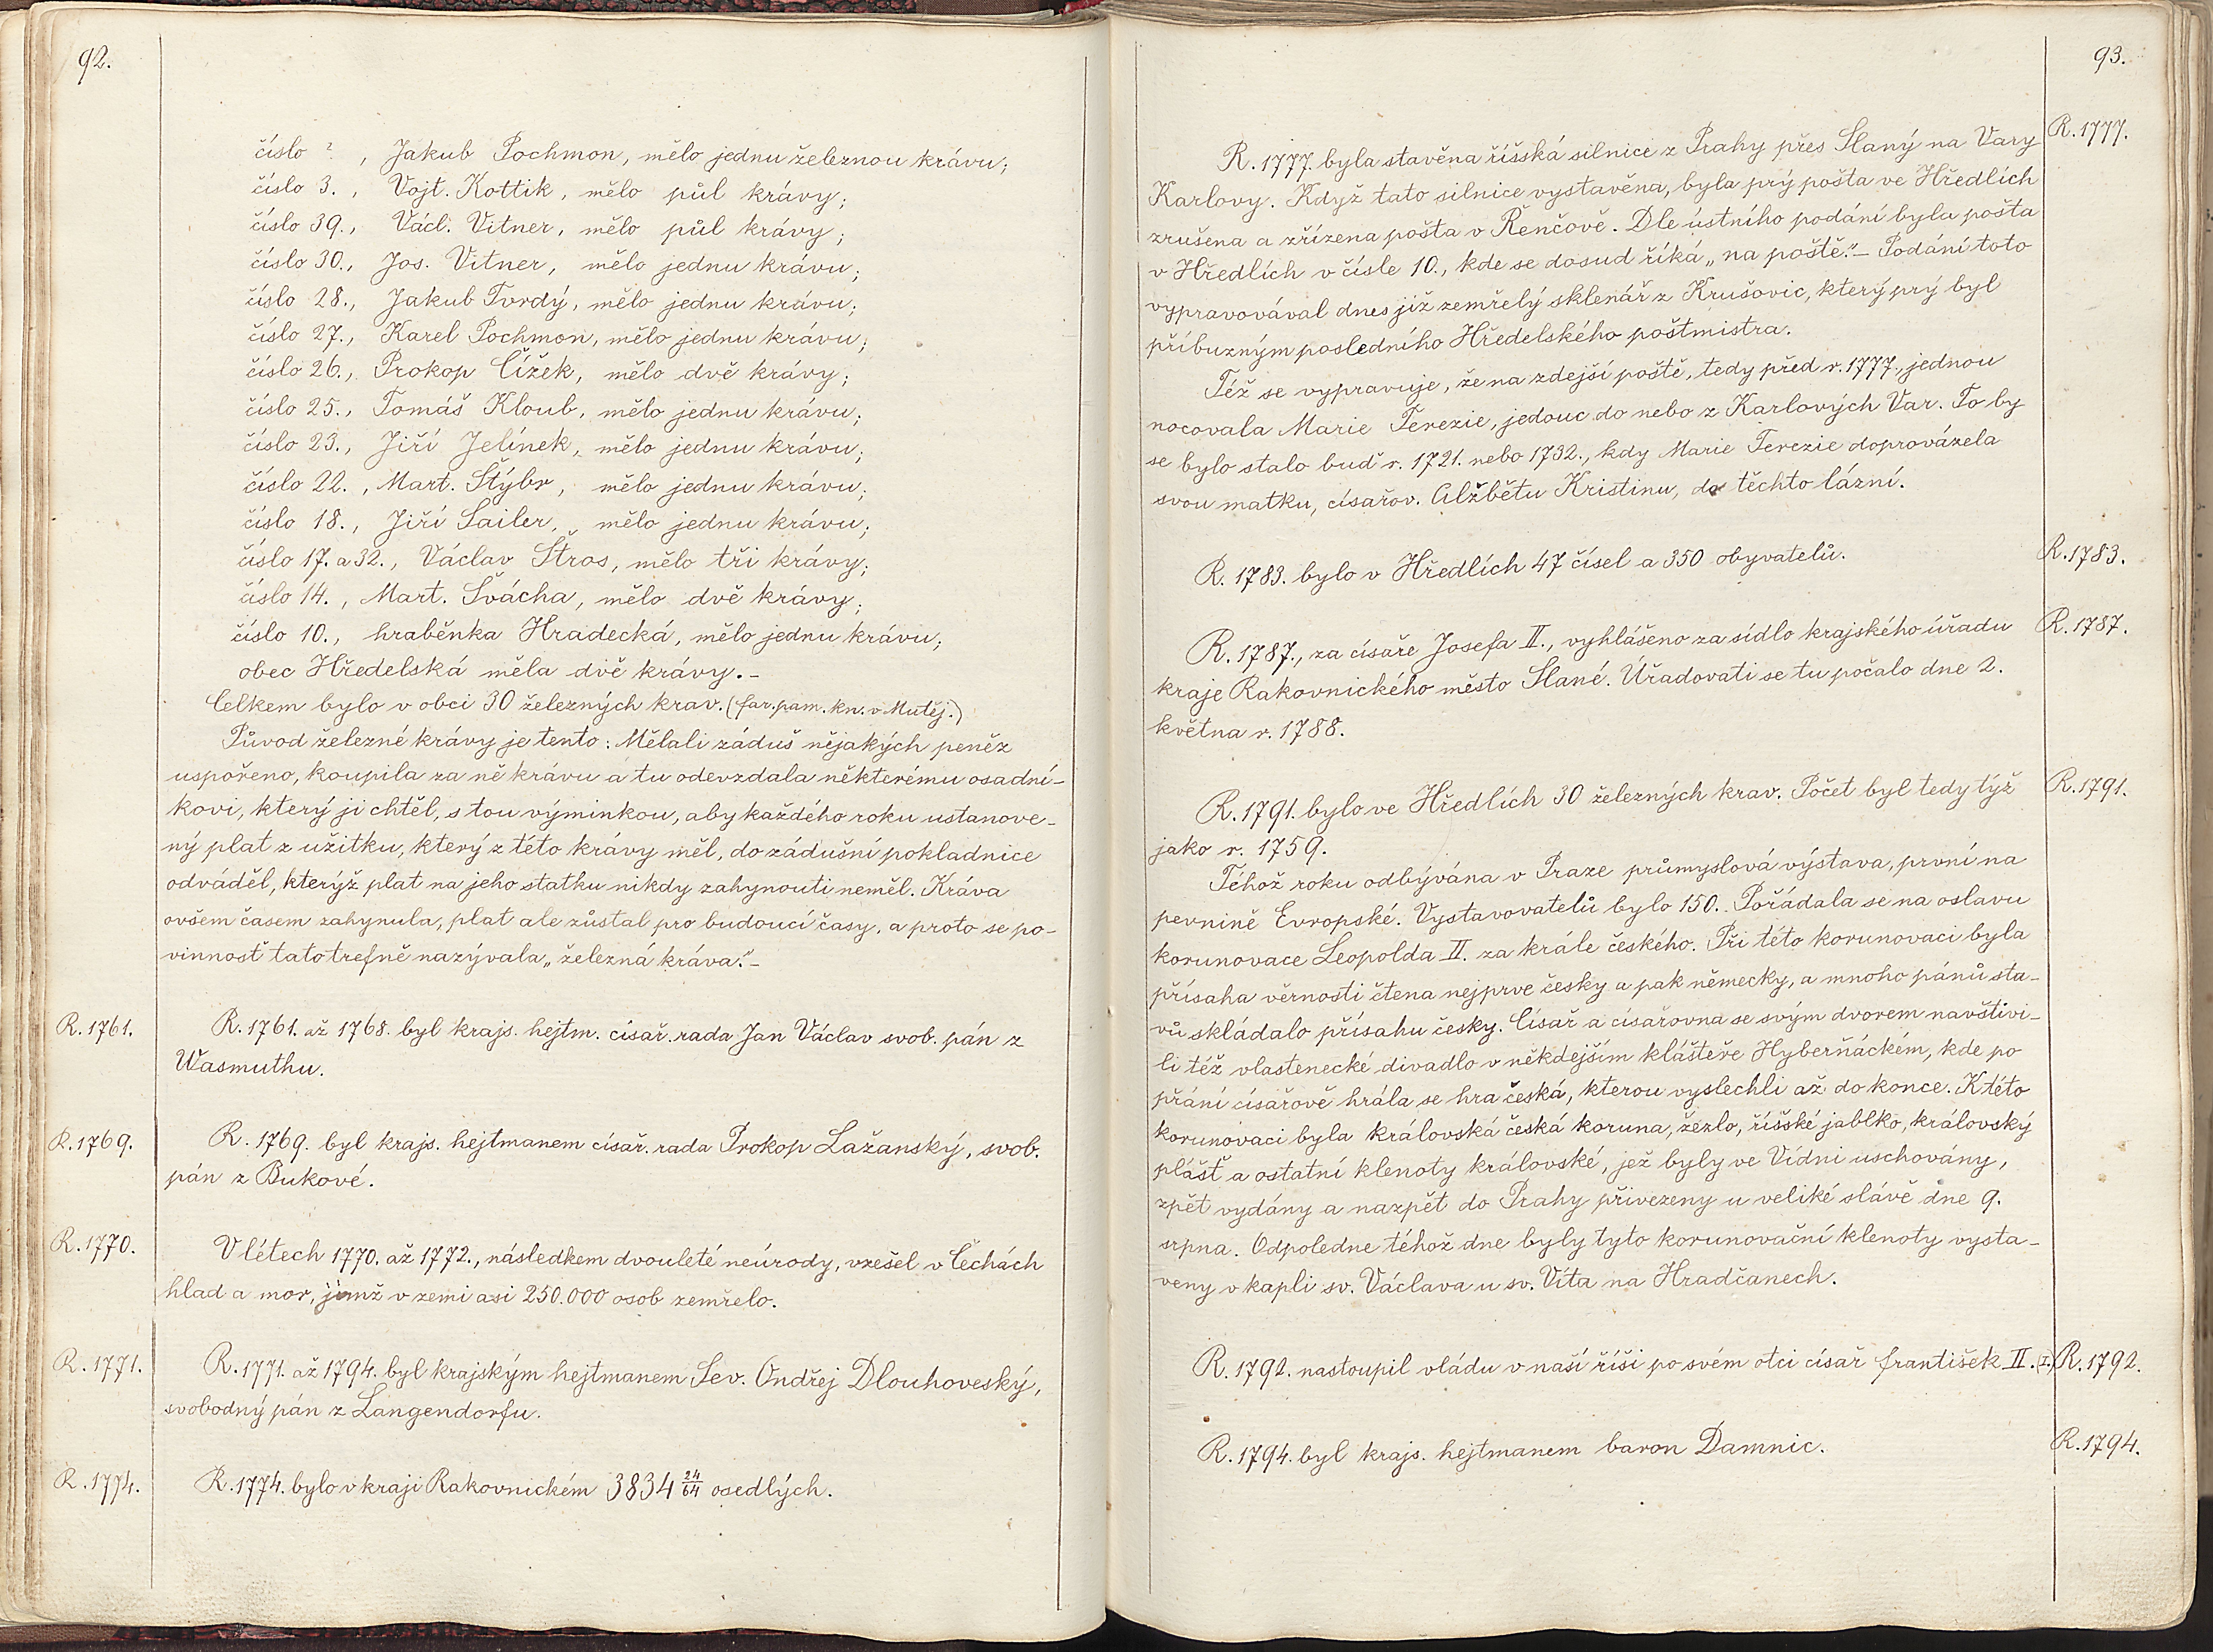 92.
číslo ?., Jakub Pochmon, mělo jednu železnou krávu;
číslo 3., Vojt. Kottik, mělo půl krávy;
číslo 39., Václ. Vitner, mělo půl krávy;
číslo 30., Jos. Vitner, mělo jednu krávu;
číslo 28., Jakub Tvrdý, mělo jednu krávu;
číslo 27., Karel Pochmon, mělo jednu krávu;
číslo 26., Prokop Čížek, mělo dvě krávy;
číslo 25., Tomáš Kloub, mělo jednu krávu;
číslo 23., Jiří Jelínek, mělo jednu krávu;
číslo 22., Mart. Štýbr, mělo jednu krávu;
číslo 18., Jiří Sailer, mělo jednu krávu;
číslo 17. a 32., Václav Štros, mělo tři krávy;
číslo 14., Mart. Švácha, mělo dvě krávy;
číslo 10., hraběnka Hradecká, mělo jednu krávu;
obec Hředelská měla dvě krávy.-
Celkem bylo v obci 30 železných krav. (far. pam. kn. v Mutěj.)
Původ železné krávy je tento: Mělali záduš nějakých peněz
uspořeno, koupila za ně krávu a tu odevzdala některému osadní-
kovi, který ji chtěl, s tou výminkou, aby každého roku ustanove-
ný plat z užitku, který z této krávy měl, do zádušní pokladnice
odváděl, kterýž plat na jeho statku nikdy zahynouti neměl. Kráva
ovšem časem zahynula, plat ale zůstal pro budoucí časy, a proto se po-
vinnosť tato trefně nazývala „železná kráva."-
R. 1761.
R. 1761. až 1768. byl krajs. hejtm. císař. rada Jan Václav svob. pán z
Wasmuthu.
R. 1769.
R. 1769. byl krajs. hejtmanem císař. rada Prokop Lažanský, svob.
pán z Bukové.
R. 1770.
V létech 1770. až 1772., následkem dvouleté neúrody, vzešel v Čechách
hlad a mor, jimž v zemi asi 250.000 osob zemřelo.
R. 1771.
R. 1771. až 1794. byl krajským hejtmanem Lev. Ondřej Dlouhoveský,
svobodný pán z Langendorfu.
R. 1774.
R. 1774. bylo v kraji Rakovnickém 3834 24/64 osedlých.
93.
R. 1777.
R. 1777. byla stavěna říšská silnice z Prahy přes Slaný na Vary
Karlovy. Když tato silnice vystavěna, byla prý pošta ve Hředlích
zrušena a zřízena pošta v Řenčově. Dle ústního podání byla pošta
v Hředlích v čísle 10., kde se dosud říká „na poště."- Podání toto
vypravovával dnes již zemřelý sklenář z Krušovic, který prý byl
příbuzným posledního Hředelského poštmistra.
Též se vypravuje, že na zdejší poště, tedy před r. 1777., jednou
nocovala Marie Terezie, jedouc do nebo z Karlových Var. To by
se bylo stalo buď r. 1721. nebo 1732., kdy Marie Terezie doprovázela
svou matku, císařov. Alžbětu Kristinu, do těchto lázní.
R. 1783.
R. 1783. bylo v Hředlích 47 čísel a 350 obyvatelů.
R. 1787.
R. 1787., za císaře Josefa II., vyhlášeno za sídlo krajského úřadu
kraje Rakovnického město Slané. Úřadovati se tu počalo dne 2.
května r. 1788.
R. 1791.
R. 1791. bylo ve Hředlích 30 železných krav. Počet byl tedy týž
jako r. 1759.
Téhož roku odbývána v Praze průmyslová výstava, první na
pevnině Evropské. Vystavovatelů bylo 150. Pořádala se na oslavu
korunovace Leopolda II. za krále českého. Při této korunovaci byla
přísaha věrnosti čtena nejprve česky a pak německy, a mnoho pánů sta-
vů skládalo přísahu česky. Císař a císařovna se svým dvorem navštívi-
li též vlastenecké divadlo v někdejším klášteře Hyberňáckém, kde po
přání císařově hrála se hra česká, kterou vyslechli až do konce. K této
korunovaci byla královská česká koruna, žezlo, říšské jablko, královský
plášť a ostatní klenoty královské, jež byly ve Vídni uschovány,
zpět vydány a nazpět do Prahy přivezeny u veliké slávě dne 9.
srpna. Odpoledne téhož dne byly tyto korunovační klenoty vysta-
veny v kapli sv. Václava u sv. Víta na Hradčanech.
R. 1792.
R. 1792. nastoupil vládu v naší říši po svém otci císař František II. (I.)
R. 1794.
R. 1794. byl krajs. hejtmanem baron Damnic.